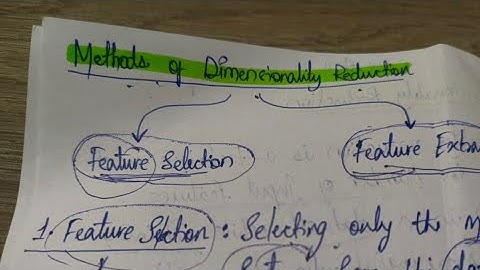 Methods of Dimensionality Reduction
Feature Selection Feature Extra
1. Feature Slection : Selecting only the